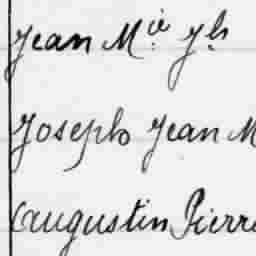 Jean Mie Jh
Joseph Jean M
Augustin Pierre